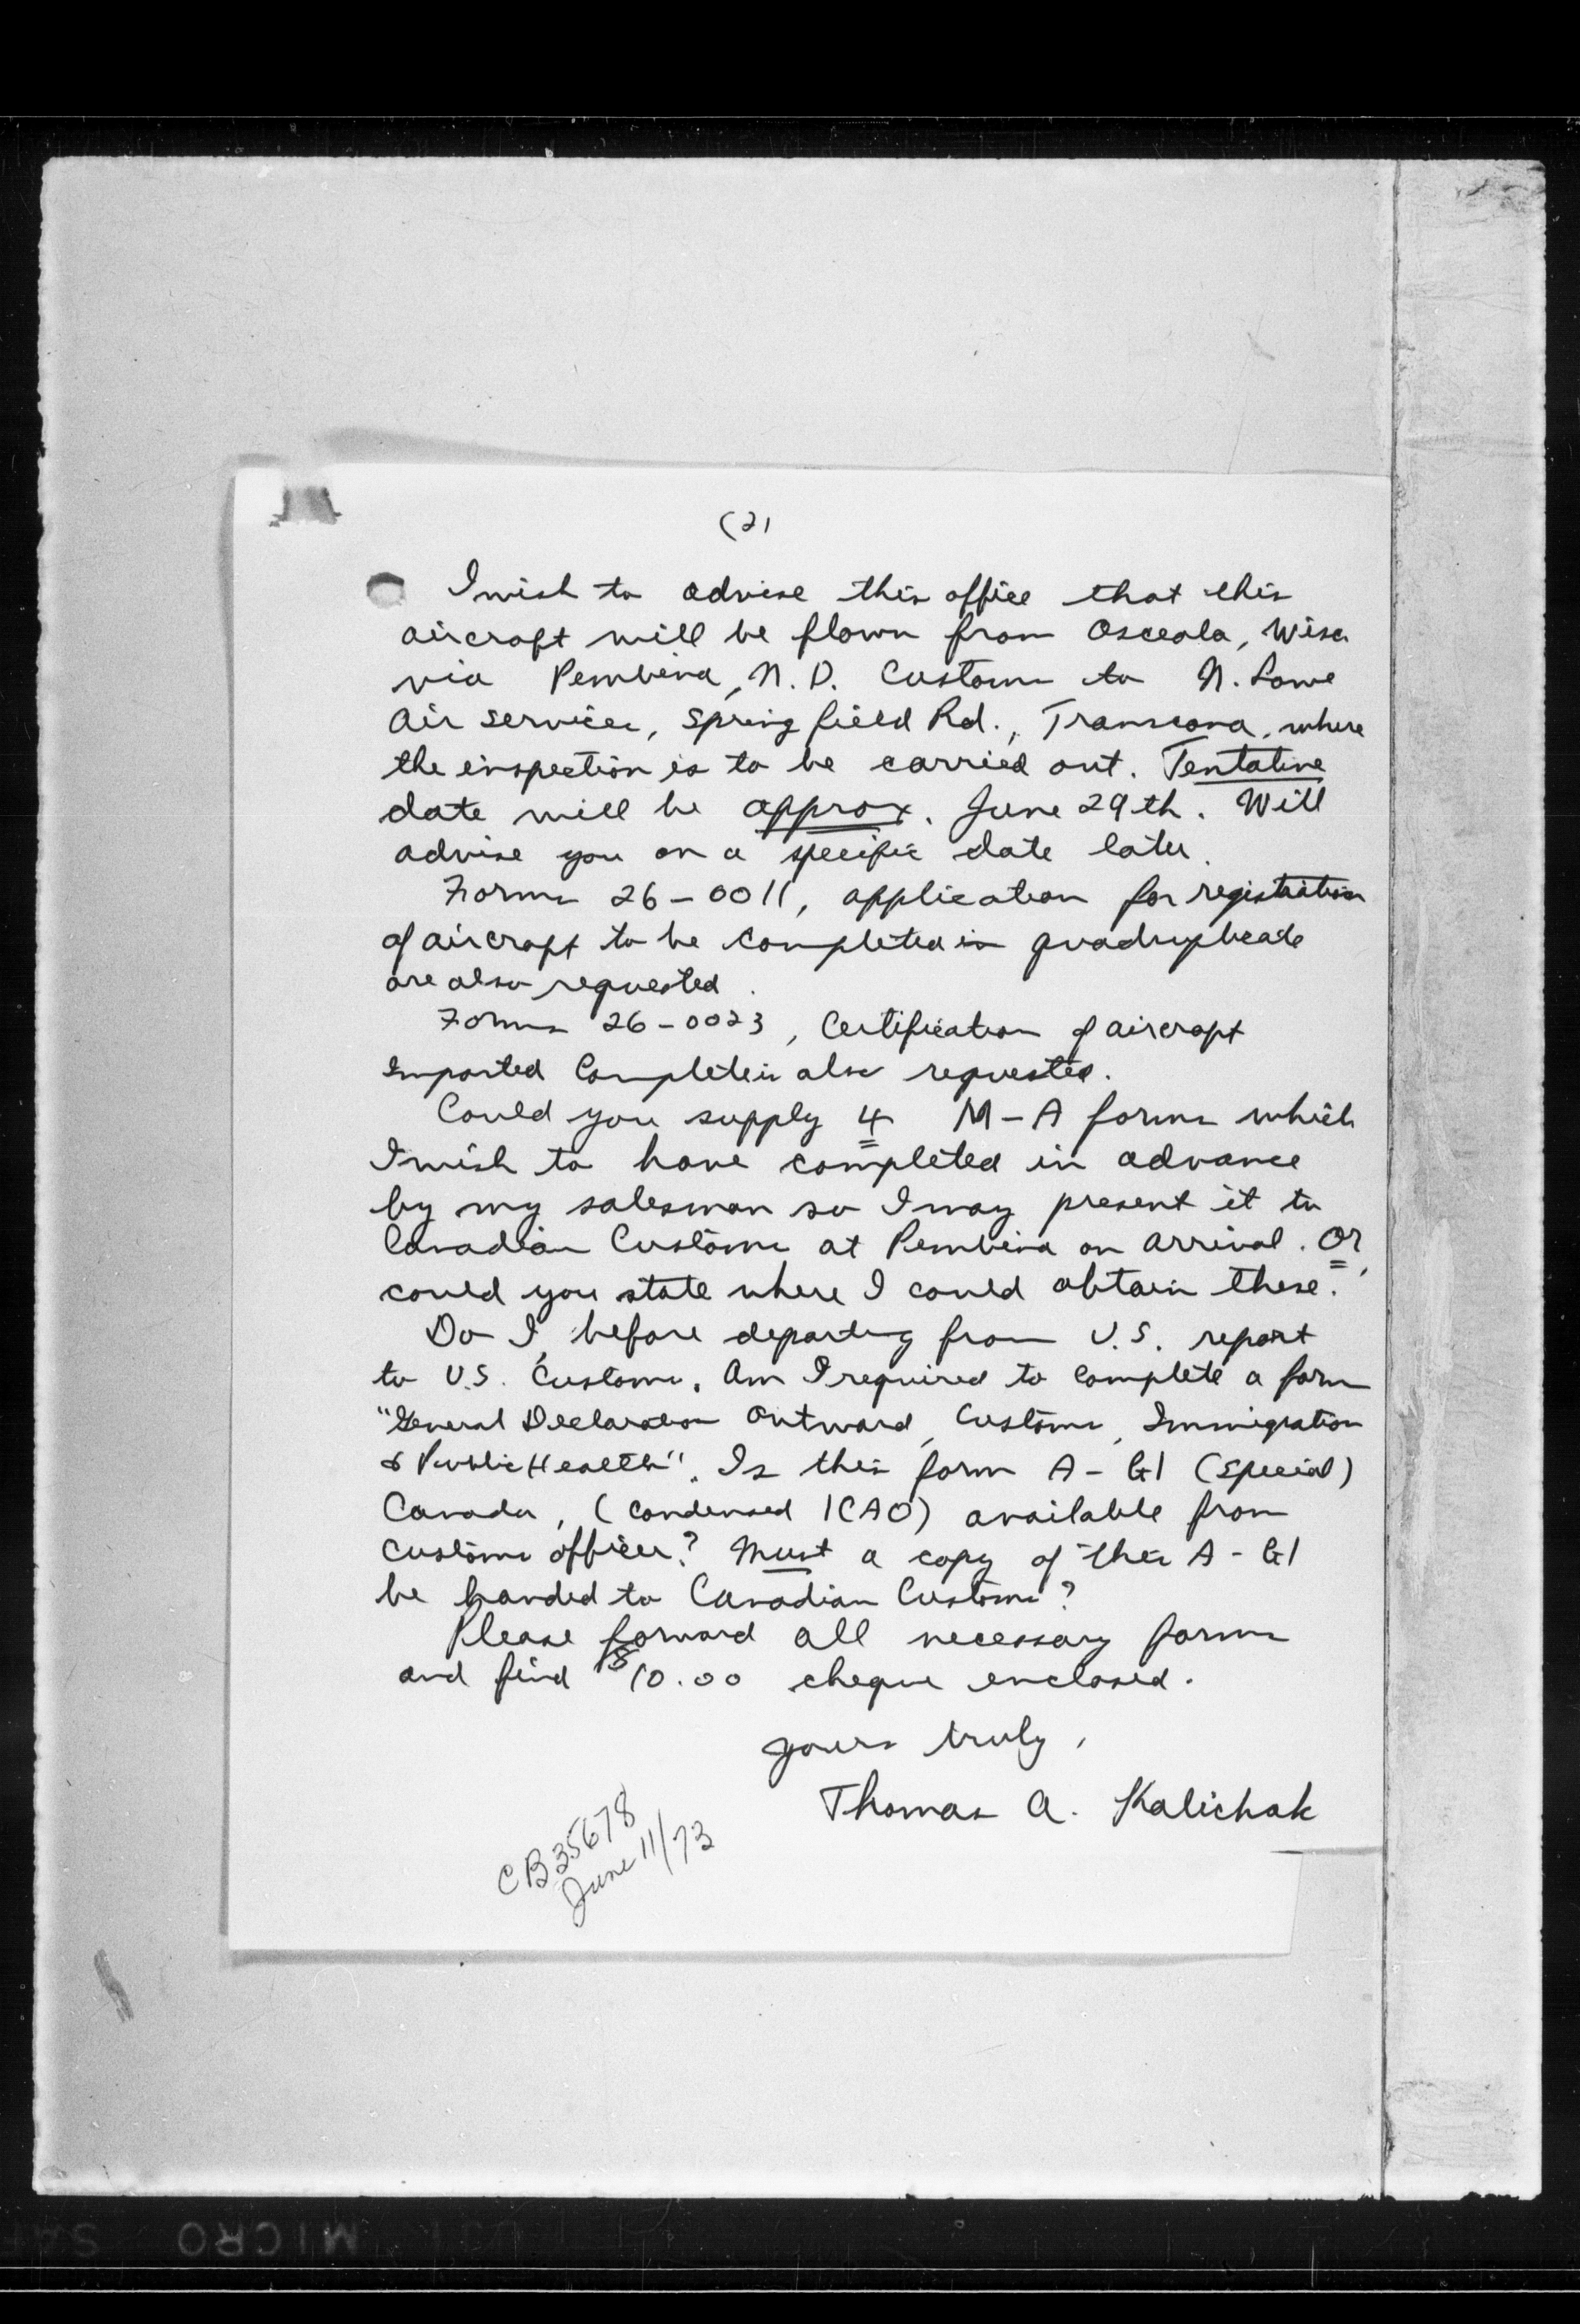 (2)
I wish to advise this office that this
aircraft will be flown from Osceola, Wisc
via Pembina, N.D. Customs to N. Lowe
Air Services, Springfield Rd., Transcona, where
the inspection is to be carried out. Tentative
date will be approx. June 29th. Will
advise you on a specific date later.
Forms 26-0011, application for registration
of aircraft to be completed in quadruplicate
are also requested.
Forms 26-0023, Certification of aircraft
imported Complete is also requested.
Could you supply 4 M-A forms which
I wish to have completed in advance
by my salesman so I may present it to
Canadian Customs at Pembina on arrival. Or,
could you state where I could obtain these.
Do I, before departing from U.S. report
to U.S. Customs. Am I required to complete a form
"General Declaration Outward, Customs, Immigration
& Public Health". Is this form A-G1 (Special)
Canada, (Condensed ICAO) available from
customs officer? Must a copy of this A-G1
be handed to Canadian Customs?
Please forward all necessary forms
and find $10.00 cheque enclosed.
Yours truly,
Thomas A. Kalichak
CB35678
June 11/73
MICRO